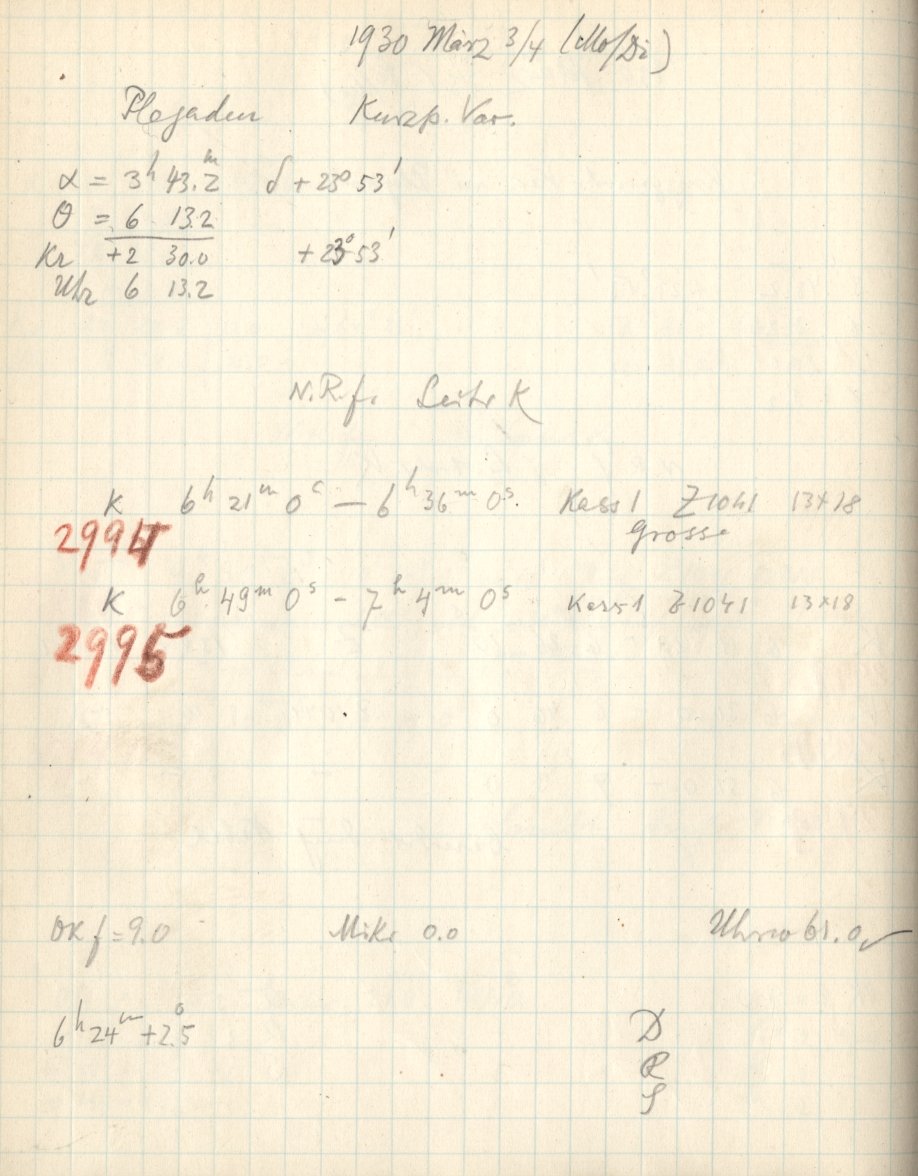 1930 März 3/4 (Mo/Di)
Plejaden Kurzp. Var.
α = 3h 43.2m δ + 23° 53'
Θ = 6 13.2
Kr +2 30.0 + 23° 53'
Uhr 6 13.2
N.Rf. Seite K
K 6h 21m 0s — 6h 36m 0s. Kass 1 Z1041 13×18
Grosse
2994
K 6h 49m 0s - 7h 4m 0s Kass 1 Z1041 13×18
2995
OK f = 9.0 Mikr 0.0 61.0
6h 24m +2.5°
D
R
S